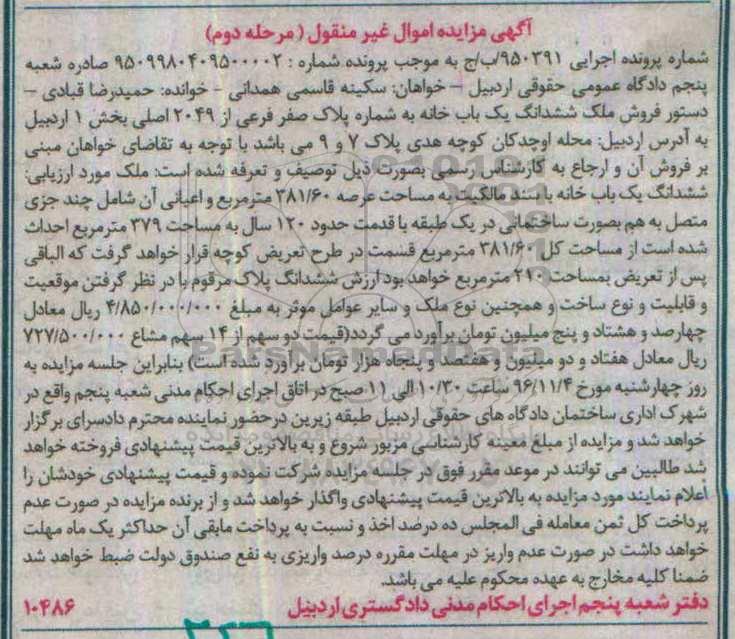 آگهی مزایده اموال غیر منقول (مرحله دوم)
شماره پرونده اجرایی ۹۵۰۳۹۱/ب/ج به موجب پرونده شماره : ۹۵۰۹۹۸۰۴۰۹۵۰۰۰۰۲ صادره شعبه
پنجم دادگاه عمومی حقوقی اردبیل – خواهان: سکینه قاسمی همدانی - خوانده: حمیدرضا قبادی –
دستور فروش ملک ششدانگ یک باب خانه به شماره پلاک صفر فرعی از ۲۰۴۹ اصلی بخش ۱ اردبیل
به آدرس اردبیل: محله اوچدکان کوچه هدی پلاک ۷ و ۹ می باشد با توجه به تقاضای خواهان مبنی
بر فروش آن و ارجاع به کارشناس رسمی بصورت ذیل توصیف و تعرفه شده است: ملک مورد ارزیابی:
ششدانگ یک باب خانه با سند مالکیت به مساحت عرصه ۳۸۱/۶۰ مترمربع و اعیانی آن شامل چند جزی
متصل به هم بصورت ساختمانی در یک طبقه با قدمت حدود ۱۲۰ سال به مساحت ۳۷۹ مترمربع احداث
شده است از مساحت کل ۳۸۱/۶۰ مترمربع قسمت در طرح تعریض کوچه قرار خواهد گرفت که الباقی
پس از تعریض بمساحت ۲۱۰ مترمربع خواهد بود ارزش ششدانگ پلاک مرقوم با در نظر گرفتن موقعیت
و قابلیت و نوع ساخت و همچنین نوع ملک و سایر عوامل موثر به مبلغ ۴/۸۵۰/۰۰۰/۰۰۰ ریال معادل
چهارصد و هشتاد و پنج میلیون تومان برآورد می گردد(قیمت دو سهم از ۱۴ سهم مشاع ۷۲۷/۵۰۰/۰۰۰
ریال معادل هفتاد و دو میلیون و هفتصد و پنجاه هزار تومان برآورد شده است) بنابراین جلسه مزایده به
روز چهارشنبه مورخ ۹۶/۱۱/۴ ساعت ۱۰/۳۰ الی ۱۱ صبح در اتاق اجرای احکام مدنی شعبه پنجم واقع در
شهرک اداری ساختمان دادگاه های حقوقی اردبیل طبقه زیرین درحضور نماینده محترم دادسرای برگزار
خواهد شد و مزایده از مبلغ معینه کارشناسی مزبور شروع و به بالاترین قیمت پیشنهادی فروخته خواهد
شد طالبین می توانند در موعد مقرر فوق در جلسه مزایده شرکت نموده و قیمت پیشنهادی خودشان را
اعلام نمایند مورد مزایده به بالاترین قیمت پیشنهادی واگذار خواهد شد و از برنده مزایده در صورت عدم
پرداخت کل ثمن معامله فی المجلس ده درصد اخذ و نسبت به پرداخت مابقی آن حداکثر یک ماه مهلت
خواهد داشت در صورت عدم واریز در مهلت مقرره درصد واریزی به نفع صندوق دولت ضبط خواهد شد
ضمنا کلیه مخارج به عهده محکوم علیه می باشد.
دفتر شعبه پنجم اجرای احکام مدنی دادگستری اردبیل ۱۰۴۸۶